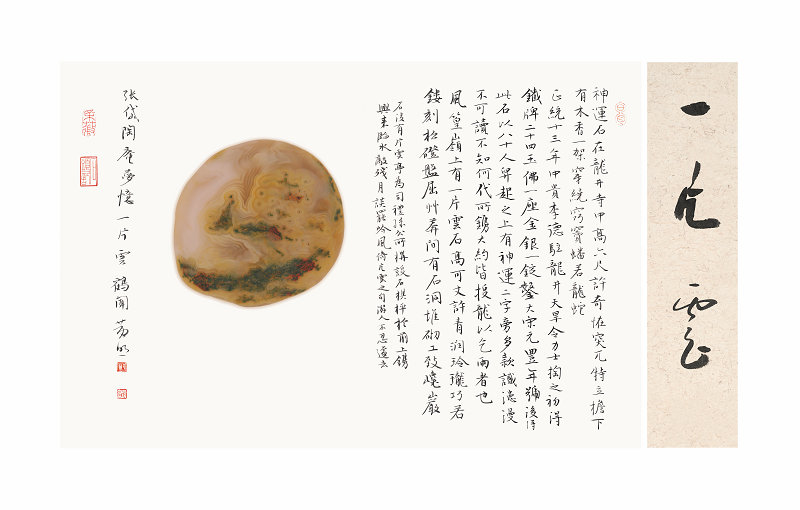 一片雲
神運石在龍井寺中高六尺許奇怪突兀特立檐下
有木香一架穿繞窍竇蟠若龍蛇
正統十三年中貴李德駐龍井天旱令力士掏之初得
鐵牌二十四玉佛一座金銀一錠鑿大宋元豐年號後得
此石以八十人舁起之上有神運二字旁多款識漶漫
不可讀不知何代所鐫大約皆投龍以乞雨者也
風篁嶺上有一片雲石高可丈許青润玲瓏巧若
鏤刻松磴盤屈艸莽間有石洞堆砌工致巉巖
石後有片雲亭為司禮孫公所構設石棋枰於前上鐫
興来臨水敲殘月談罷吟風倚片雲之句游人不忍遽去
张岱陶庵夢憶一片雲 鶴聞